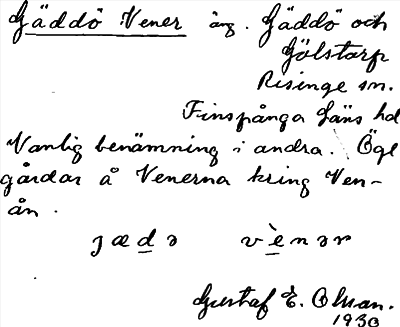 Gäddö Vener äng. Gäddö och
Gölstorp
Risinge sn.
Finspånga läns hd
Vanlig benämning i andra. Ögl
gårdar å Venerna kring Ven-
ån.
ɟæd̲ə vè̲nər
Gustaf E. Olsson.
1930